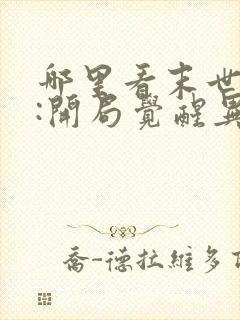 哪里看末世
:開局覺醒異
喬-德拉維多